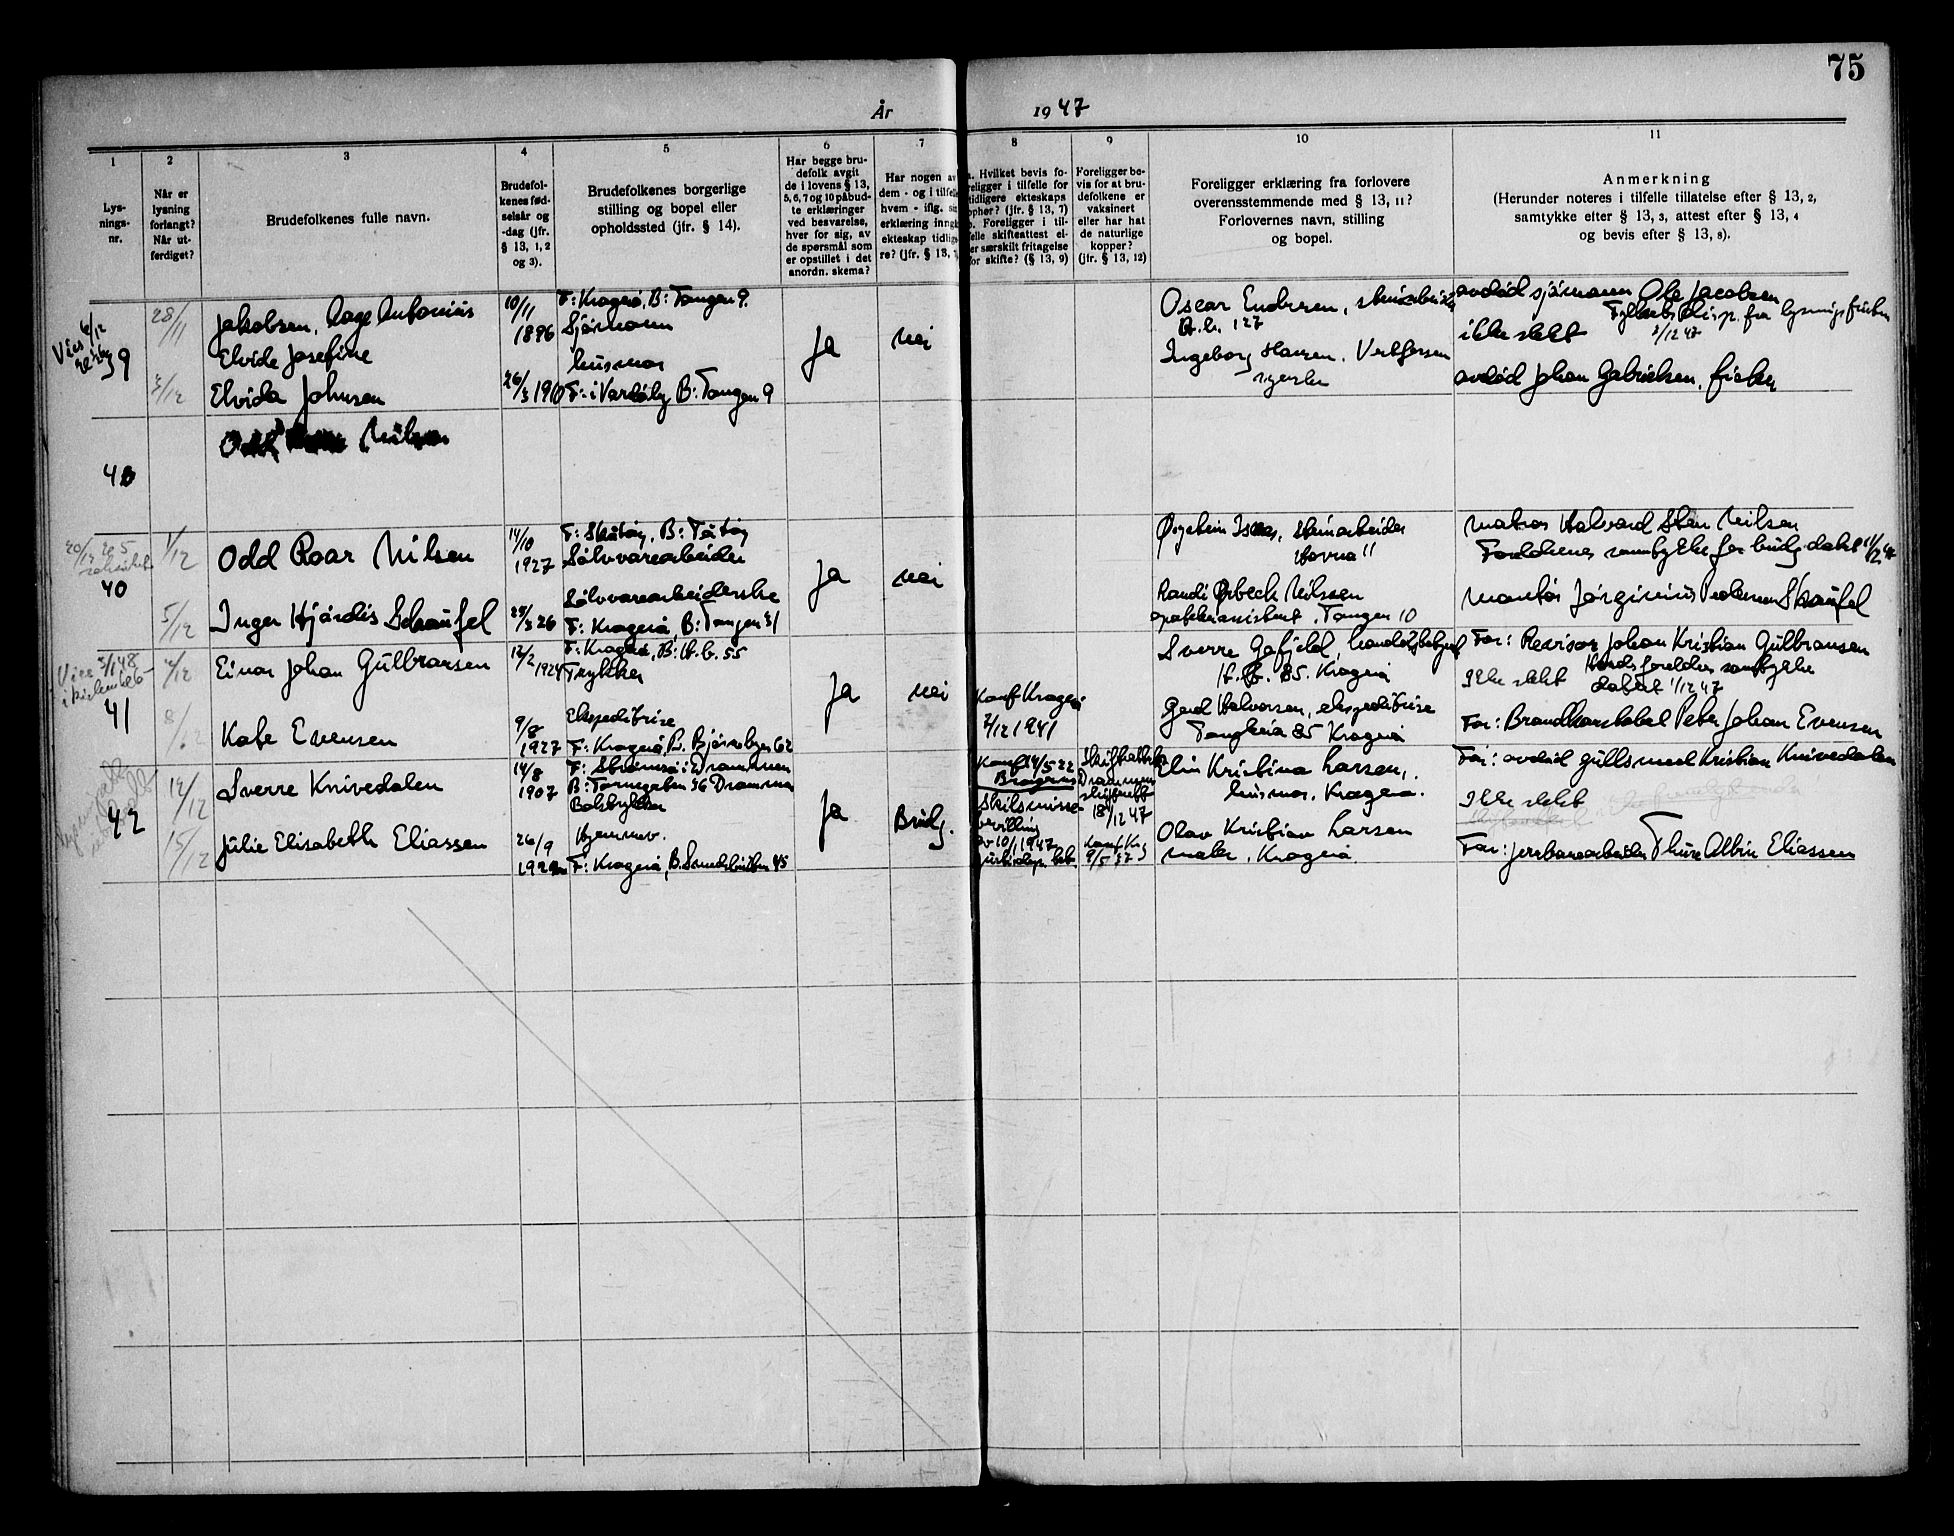 75
År 1947
1 2 3 4 5 6 7 8 9 10 11
Lysningsnr.
Når er lysning forlangt? Når utferdiget?
Brudefolkenes fulle navn.
Brudefolkenes fødselsår og -dag (jfr. § 13, 1, 2 og 3).
Brudefolkenes borgerlige stilling og bopel eller opholdssted (jfr. § 14).
Har begge brudefolk avgit de i lovens § 13, 5, 6, 7 og 10 påbudte erklæringer ved besvarelse, hver for sig, av de spørsmål som er opstillet i det anordn. skema?
Har nogen av dem - og i tilfelle hvem - iflg. sin erklæring inngå ekteskap tidligere? (jfr. § 13, 7
a. Hvilket bevis foreligger i tilfelle for tidligere ekteskaps opphør? (jfr. § 13, 7) b. Foreligger i tilfelle skifteattest eller særskilt fritagelse for skifte? (§ 13, 9)
Foreligger bevis for at brudefolkene er vaksinert eller har hat de naturlige kopper? (jfr. § 13, 12)
Foreligger erklæring fra forlovere overensstemmende med § 13, 11? Forlovernes navn, stilling og bopel.
Anmerkning
(Herunder noteres i tilfelle tillatelse efter § 13, 2, samtykke efter § 13, 3, attest efter § 13, 4 og bevis efter § 13, 8).
39
28/11
Jakobsen, Aage Antonius
10/11 1896
F: Kragerø, B: Tangen 9.
Sjømann
Ja
nei
Oscar Endresen,
avdød sjømann Ole Jacobsen
ikke slekt
3/12 47
3/12
Elvide Josefine
Elvida Johnsen
26/3 1910
husmor
F: i Vardøby B: Tangen 9
Ingeborg Hansen,
avdød Johan Gabrielsen, fisker
40
Odd Nilsen
40
1/12
Odd Roar Nilsen
14/10 1927
F: Skåtøy, B: Tåtøy
Sølvvarearbeider
Ja
nei
steinarbeider
matros Halvard Stein Nilsen
Foreldrenes samtykke for brudg. datert 1/12 47
5/12
Inger Hjørdis Schaufel
29/3 26
Sølvvarearbeiderske
F: Kragerø, B: Tangen 31
Randi Ørbeck Nilsen
Tangen 10
montør Jørginius Pedersen Skaufel
Vies 3/1 48
41
4/12
Einar Johan Gulbransen
12/2 1924
F: Kragerø, B: H.b. 55
Trykker
Ja
nei
Konf Kragerø
7/12 1941
Sverre Gafjeld,
H.b. 85. Kragerø
Far: Revisor Johan Kristian Gulbransen
Ikke slekt
foreldres samtykke
datert 1/12 47
8/12
Kate Evensen
9/8 1927
Ekspeditrise
F: Kragerø, B. 62
Gerd Halvorsen, ekspeditrise
85 Kragerø
Far: Brandkonstabel Peter Johan Evensen
42
12/12
Sverre Knivedalen
14/8 1907
F: Strømsø i Drammen
B: Tornegaten 36 Drammen
Boktrykker
Ja
Brudg.
Konf 14/5 22
Bragernes
Skilsmissebevilling
av 10/1 1947
Skifteattest
Drammen
skifterett
18/12 47
Elin Kristina Larsen,
husmor, Kragerø.
Far: avdød gullsmed Kristian Knivedalen
Ikke slekt
15/12
Julie Elisabeth Eliassen
26/9
Hjemmev.
F: Kragerø, B. 45
Konf. Krg
9/5 37
Olav Kristian Larsen
maler, Kragerø
Far: jernbanearbeider Thure Albin Eliassen